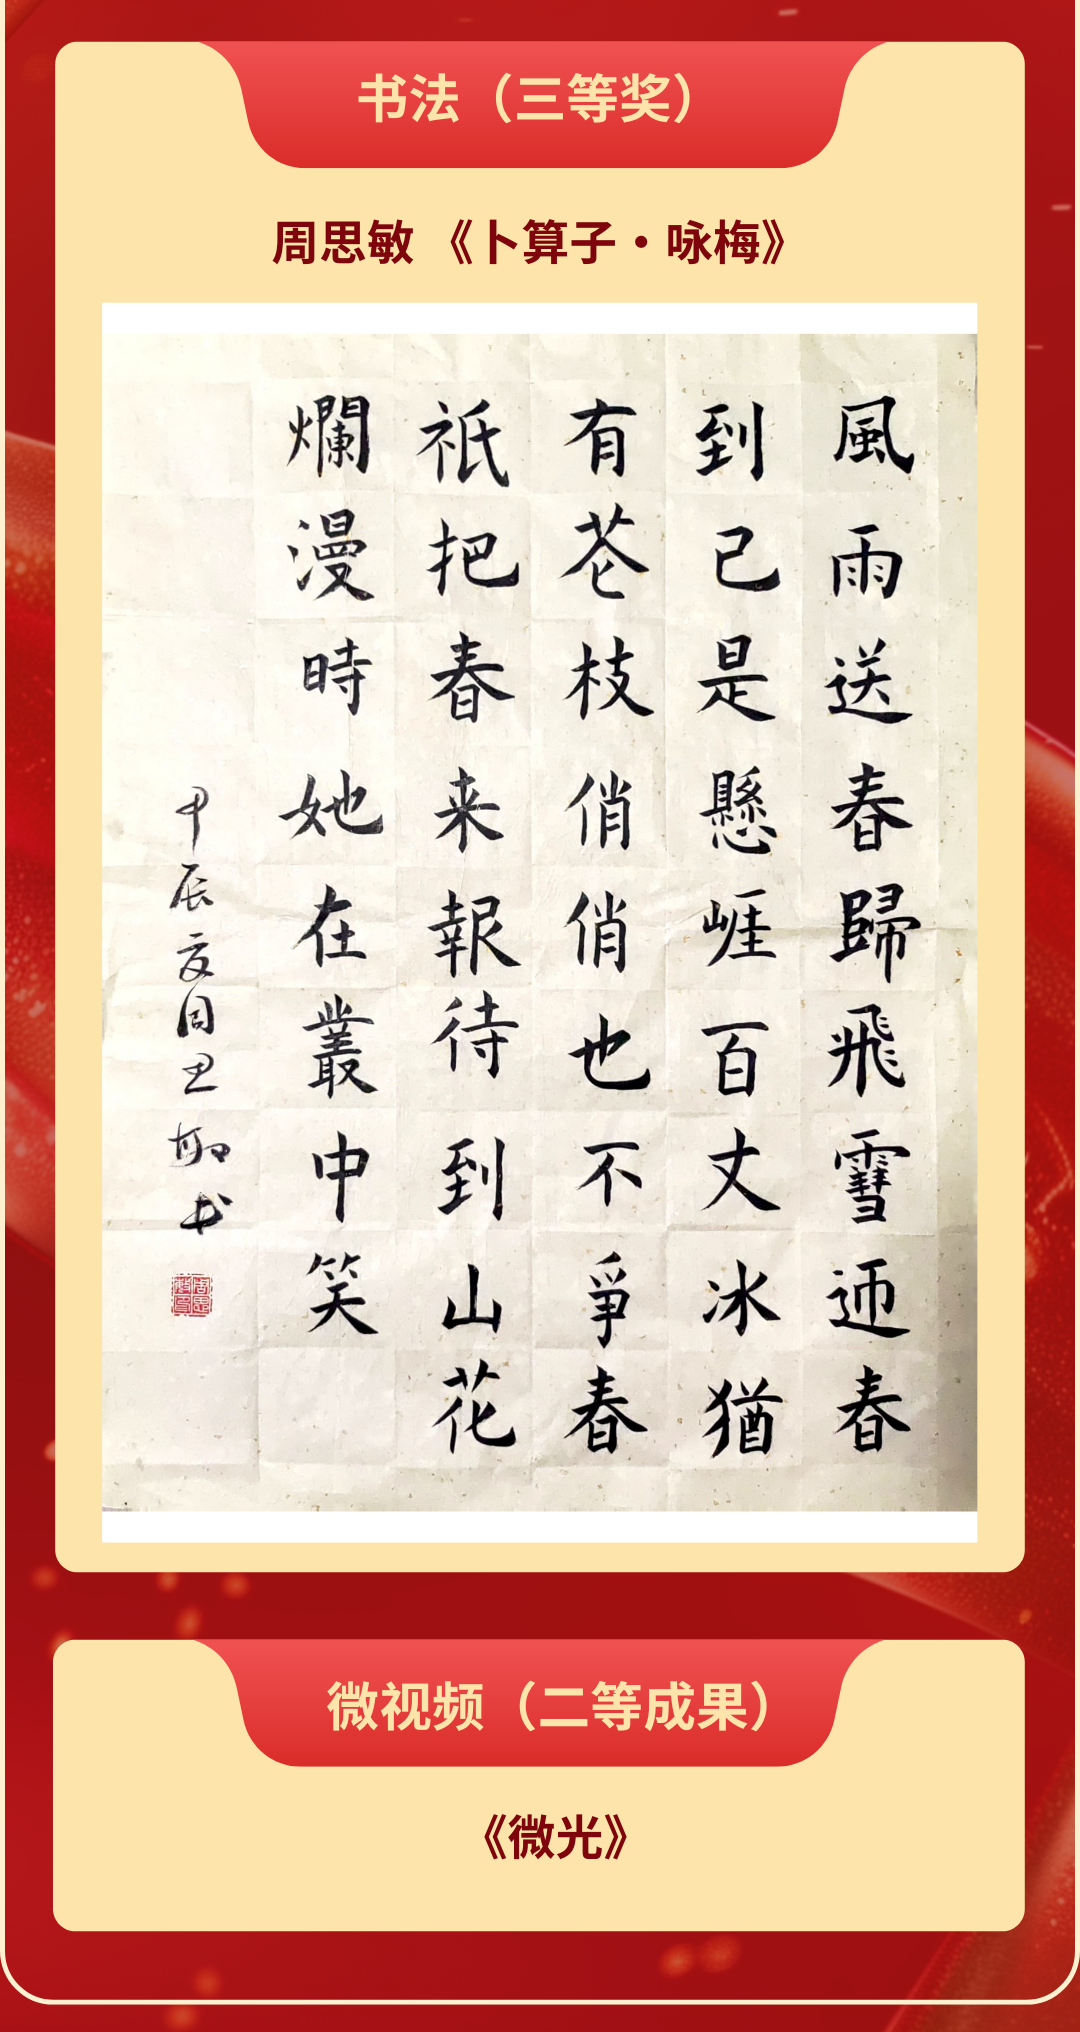 书法（三等奖）
周思敏 《卜算子·咏梅》
風雨送春歸飛雪迊春
到已是懸崕百丈冰猶
有苍枝俏俏也不爭春
祇把春来報待到山花
爛漫時她在叢中笑
甲辰夏周思敏书
微视频（二等成果）
《微光》